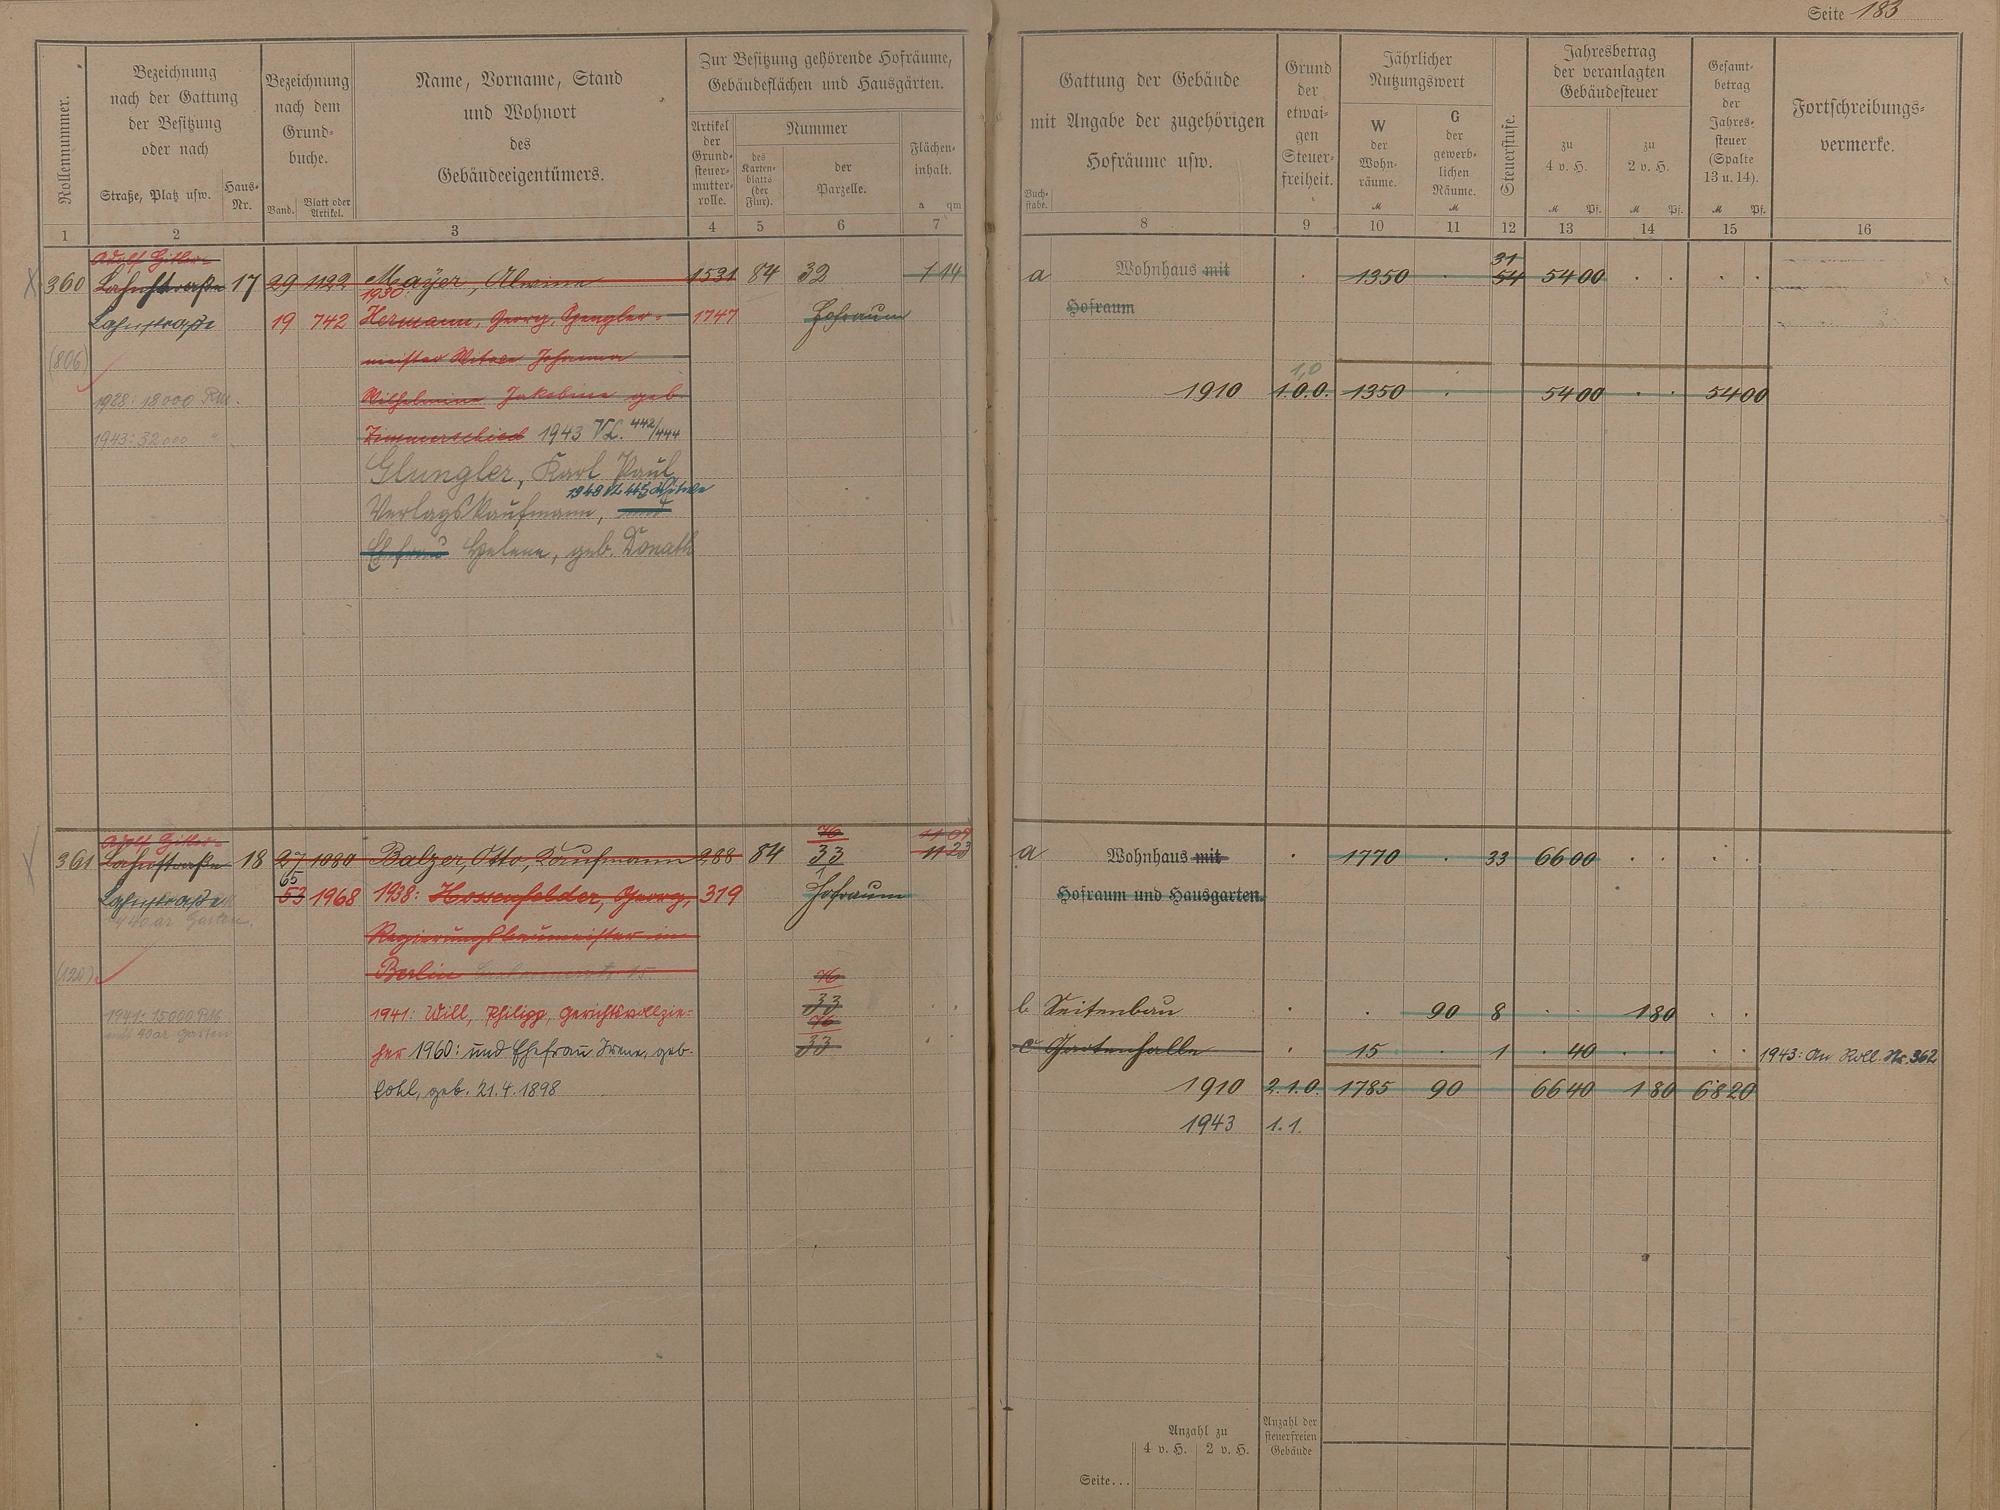 Seite 183
Rollennummer.
Bezeichnung
nach der Gattung
der Besitzung
oder nach
Straße, Platz usw.
Haus-
Nr.
Bezeichnung
nach dem
Grund-
buche.
Band.
Blatt oder
Artikel.
Name, Vorname, Stand
und Wohnort
des
Gebäudeeigentümers.
Zur Besitzung gehörende Hofräume,
Gebäudeflächen und Hausgärten.
Artikel
der
Grund-
steuer-
mutter-
rolle.
Nummer
des
Karten-
blatts
(der
Flur).
der
Parzelle.
Flächen-
inhalt.
a qm
Gattung der Gebäude
mit Angabe der zugehörigen
Hofräume usw.
Buch-
stabe.
Grund
der
etwai-
gen
Steuer-
freiheit.
Jährlicher
Nutzungswert
W
der
Wohn-
räume.
M
G
der
gewerb-
lichen
Räume.
M
Steuerstufe.
Jahresbetrag
der veranlagten
Gebäudesteuer
zu
4 v. H.
M Pf.
zu
2 v. H.
M Pf.
Gesamt-
betrag
der
Jahres-
steuer
(Spalte
13 u. 14).
M Pf.
Fortschreibungs-
vermerke.
1 2 3 4 5 6 7 8 9 10 11 12 13 14 15 16
Adolf Hitler-
360 Lahnstraße 17 29 1122 Mayer, Alwine 1531 84 32 1 14 a Wohnhaus mit 1350 31 54 54 00
1930
Lahnstraße 19 742 Hermann, Georg, Spengler- 1747 Hofraum Hofraum
meister Witwe Johanna
(806)
Wilhelmine Jakobine geb
1,0
1928: 18000 Rm. 1910 1.0.0. 1350 54 00 54 00
1943: 32000 " Zimmerschied 1943 VL. 442/444
Glungler, Karl Paul
1948 VL 445 Witwe
Verlagskaufmann, und
Ehefrau Helene, geb. Donath
Adolf Hitler- 76 11 09
361 Lahnstraße 18 27 1080 Balzer, Otto, Kaufmann 288 84 33 11 23 a Wohnhaus mit 1770 33 66 00
65
Lahnstraße 53 1968 1938: Hossenfelder, Georg, 319 Hofraum Hofraum und Hausgarten.
40 ar Garten.
Regierungsbaumeister in
(120) Berlin 15 76
1941: 15000 RM. 1941: Will, Philipp, Gerichtsvollzie- 33 b Seitenbau 90 8 1 80
40 ar Garten 76
her 1960: und Ehefrau Irene, geb. 33 c Gartenhalle 15 1 40 1943: An Roll. Nr. 362
Cohl, geb. 21.4.1898 1910 2.1.0. 1785 90 66 40 1 80 68 20
1943 1.1.
Anzahl zu
4 v. H. 2 v. H.
Anzahl der
steuerfreien
Gebäude
Seite...